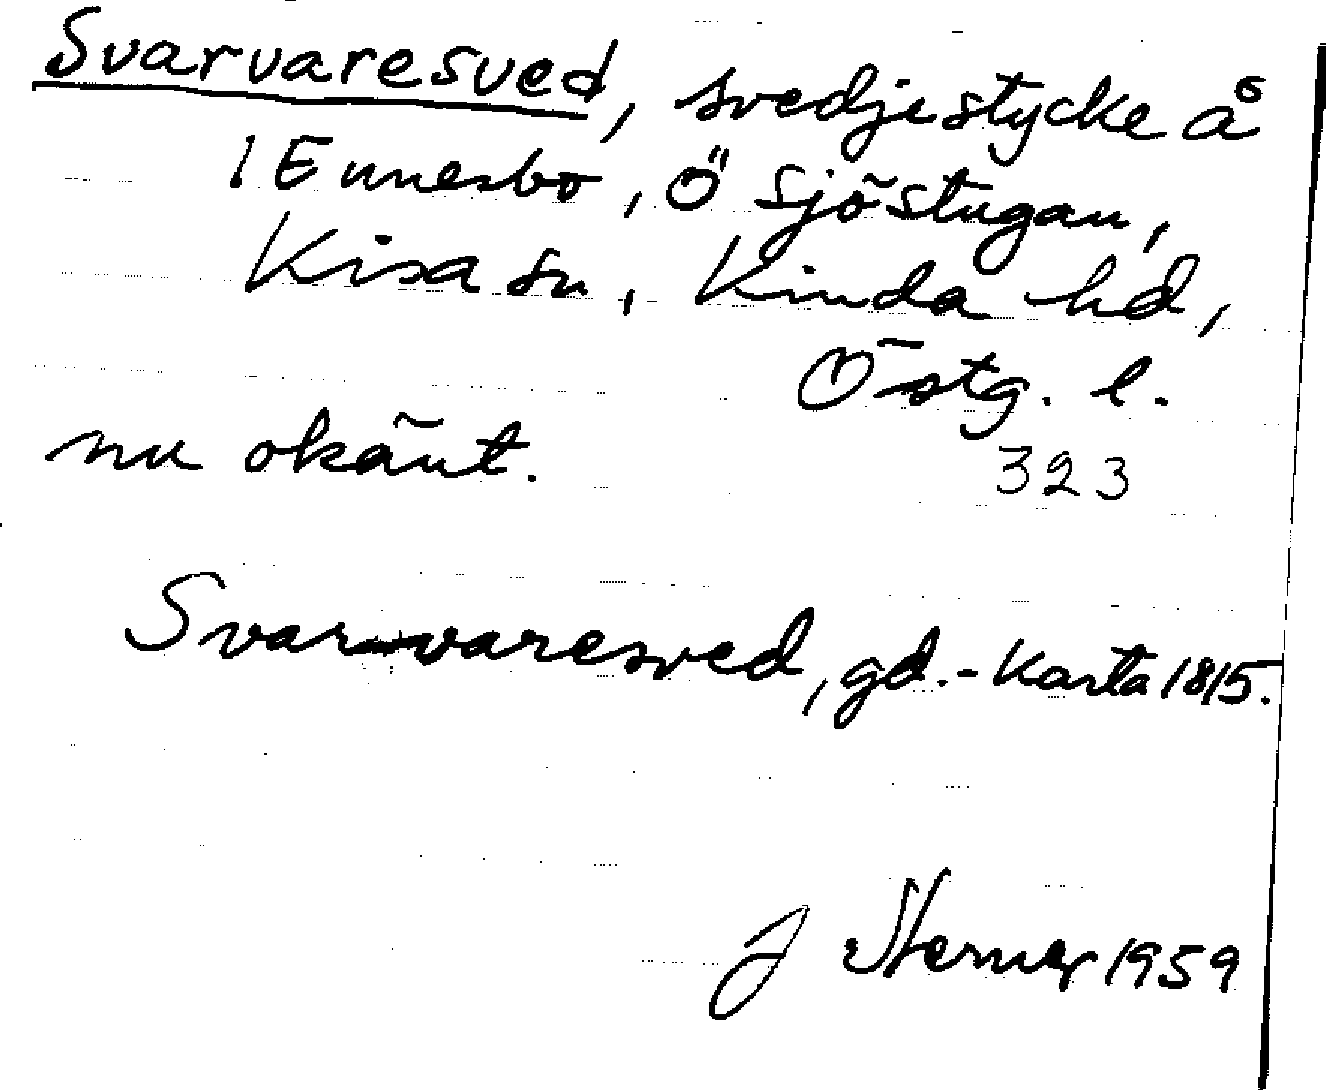 Svarvaresved, svedjestycke å
1 Ennesbo, Ö Sjöstugan,
Kisa sn, Kinda hd,
Östg. l.
nu okänt. 323
Svarvaresved, gd. - Karta 1815.
J Sterner 1959